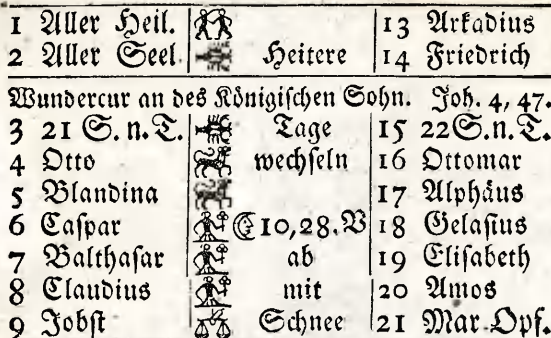 1 Aller Heil. 13 Arkadius
2 Aller Seel. Heitere 14 Friedrich
Wundercur an des Königischen Sohn. Joh. 4, 47.
3 21 S. n. T. Tage 15 22 S. n. T.
4 Otto wechseln 16 Ottomar
5 Blandina 17 Alphäus
6 Caspar ☾10,28.V 18 Gelasius
7 Balthasar ab 19 Elisabeth
8 Claudius mit 20 Amos
9 Jobst Schnee 21 Mar. Opf.